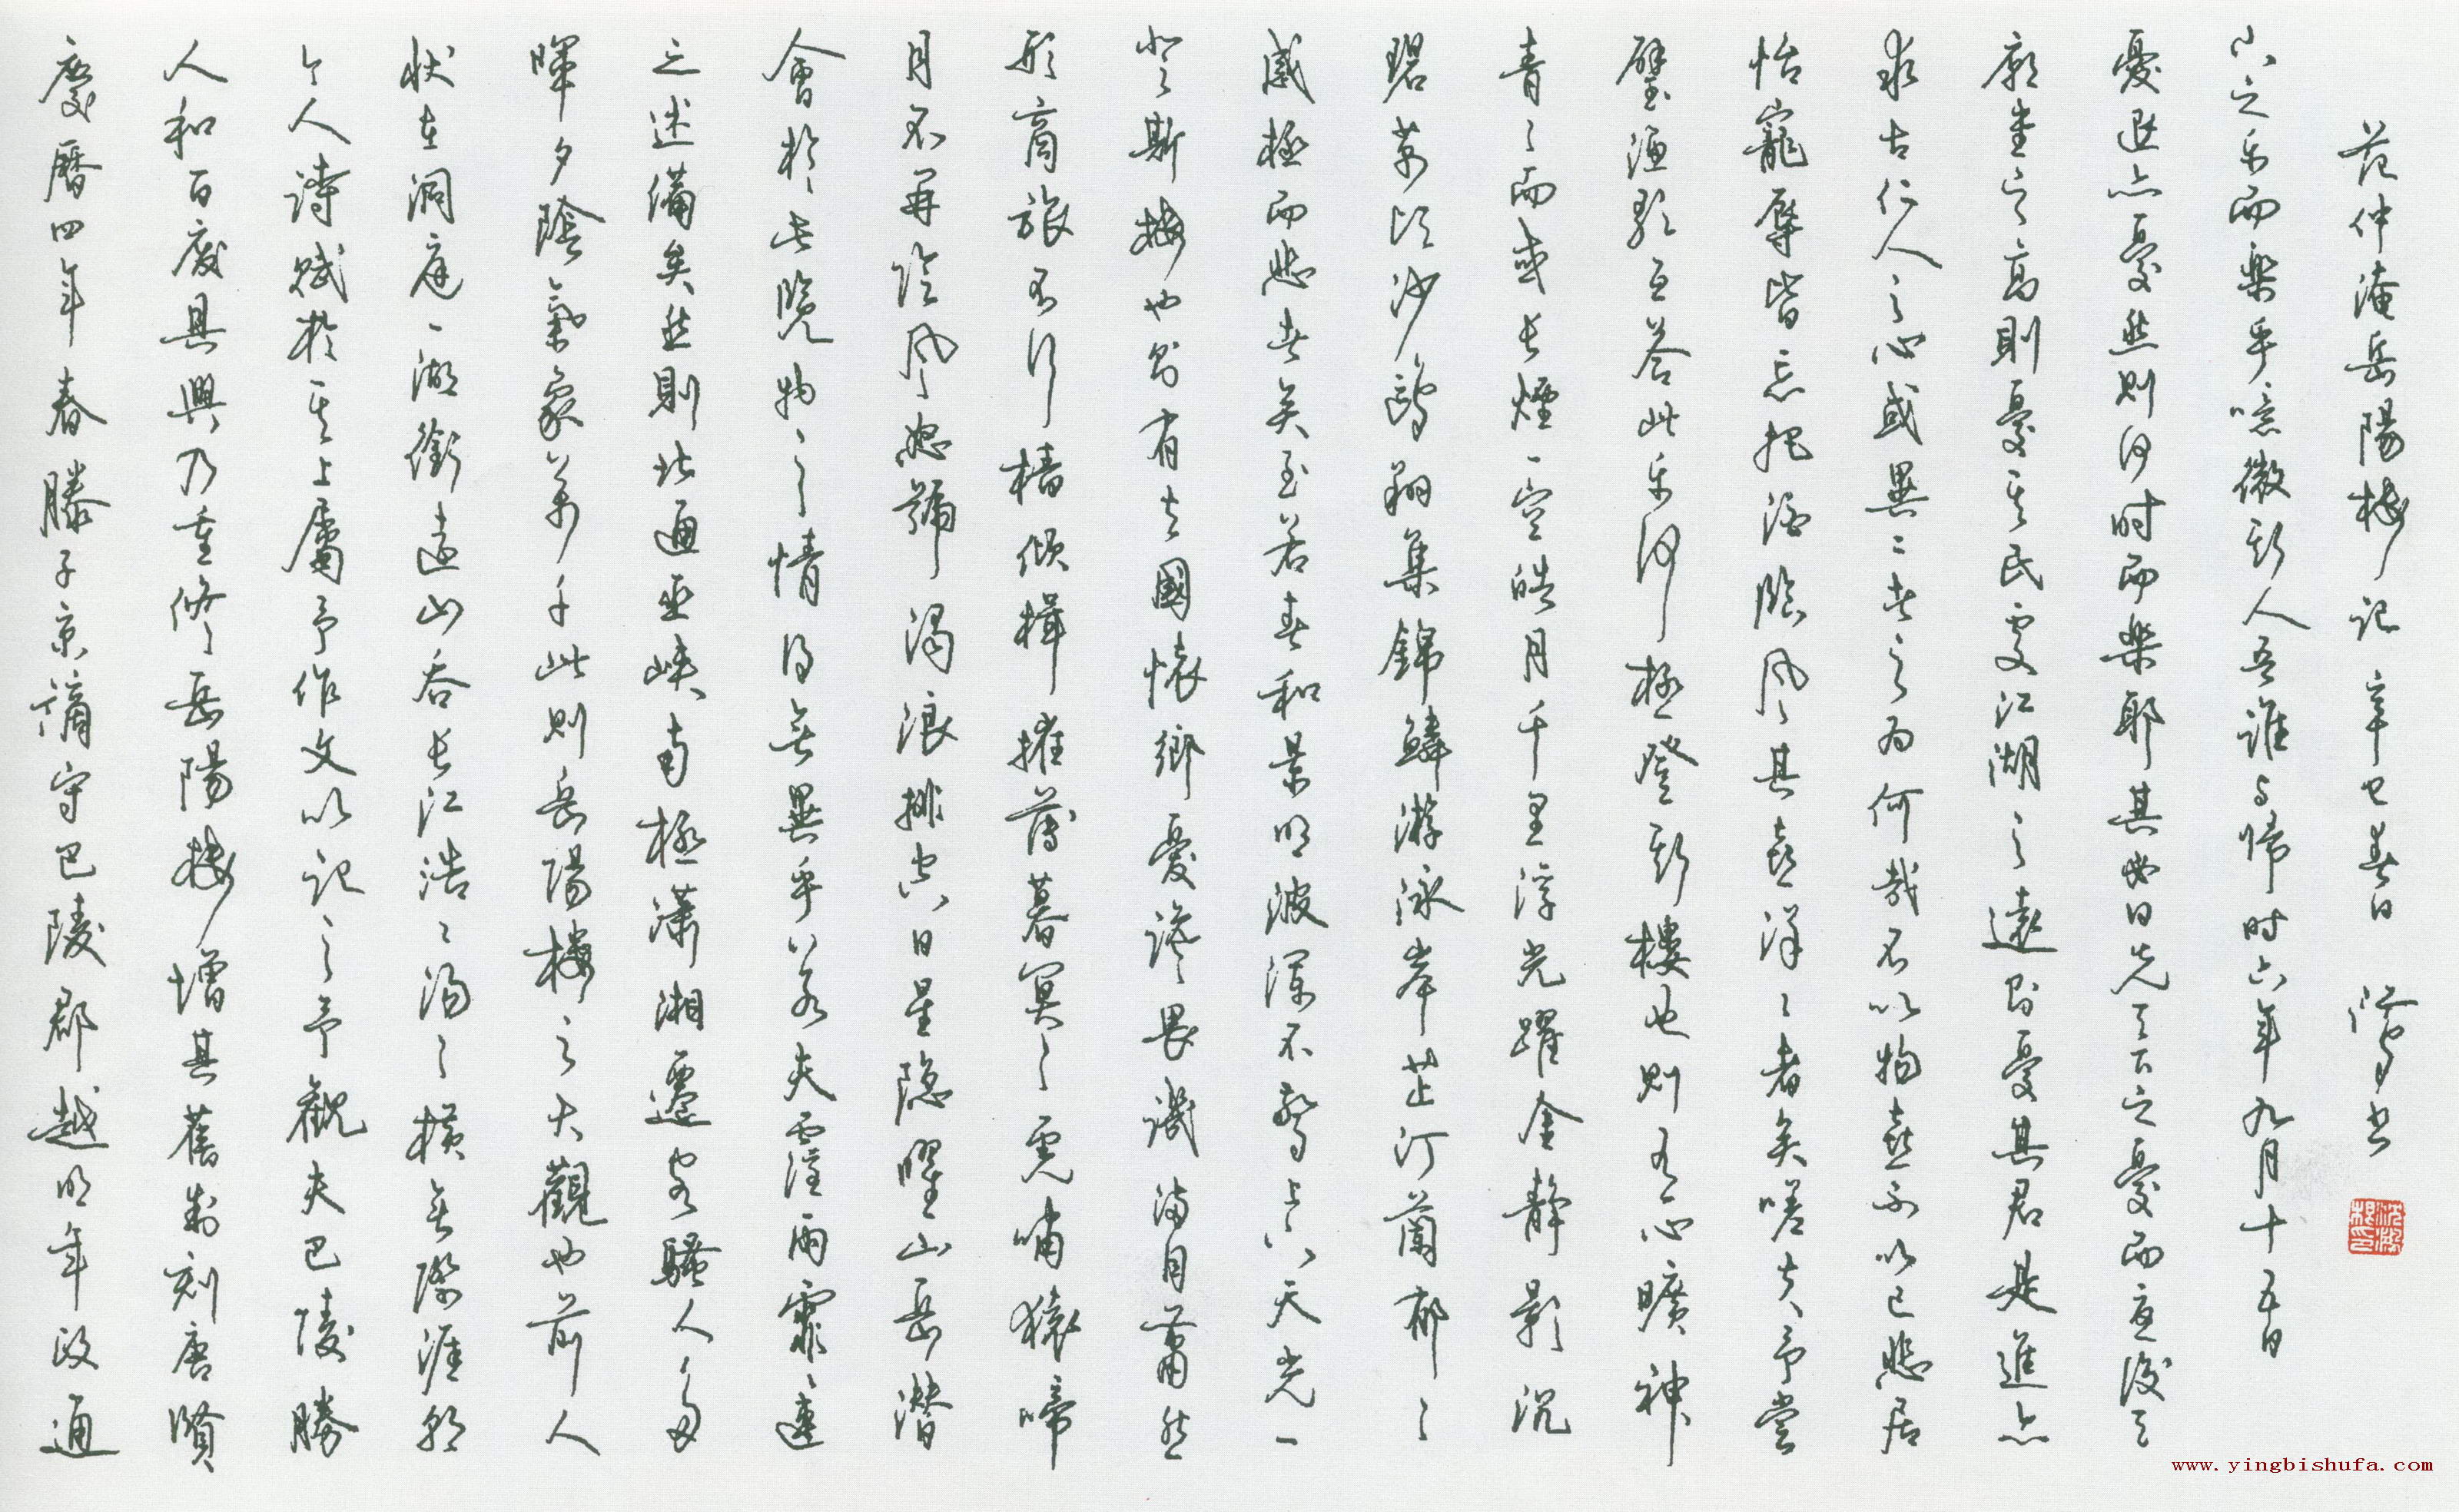 慶曆四年春滕子京謫守巴陵郡越明年政通
人和百廢具興乃重修岳陽樓增其舊制刻唐賢
今人詩賦於其上屬予作文以記之予觀夫巴陵勝
狀在洞庭一湖銜遠山吞長江浩々湯々橫無際涯朝
暉夕陰氣象萬千此則岳陽樓之大觀也前人
之述備矣然則北通巫峽南極瀟湘遷客騷人多
會於此覽物之情得無異乎若夫霪雨霏々連
月不開陰風怒號濁浪排空日星隱曜山岳潛
形商旅不行檣傾楫摧薄暮冥々虎嘯猿啼
登斯樓也則有去國懷鄉憂讒畏譏滿目蕭然
感極而悲者矣至若春和景明波瀾不驚上下天光一
碧萬頃沙鷗翔集錦鱗游泳岸芷汀蘭郁々
青々而或長煙一空皓月千里浮光躍金靜影沉
璧漁歌互答此樂何極登斯樓也則有心曠神
怡寵辱皆忘把酒臨風其喜洋々者矣嗟夫予嘗
求古仁人之心或異二者之為何哉不以物喜不以己悲居
廟堂之高則憂其民處江湖之遠則憂其君是進亦
憂退亦憂然則何時而樂耶其必曰先天下之憂而憂後天
下之樂而樂乎噫微斯人吾誰與歸時六年九月十五日
范仲淹岳陽樓記 辛巳春日 書
www.yingbishufa.com